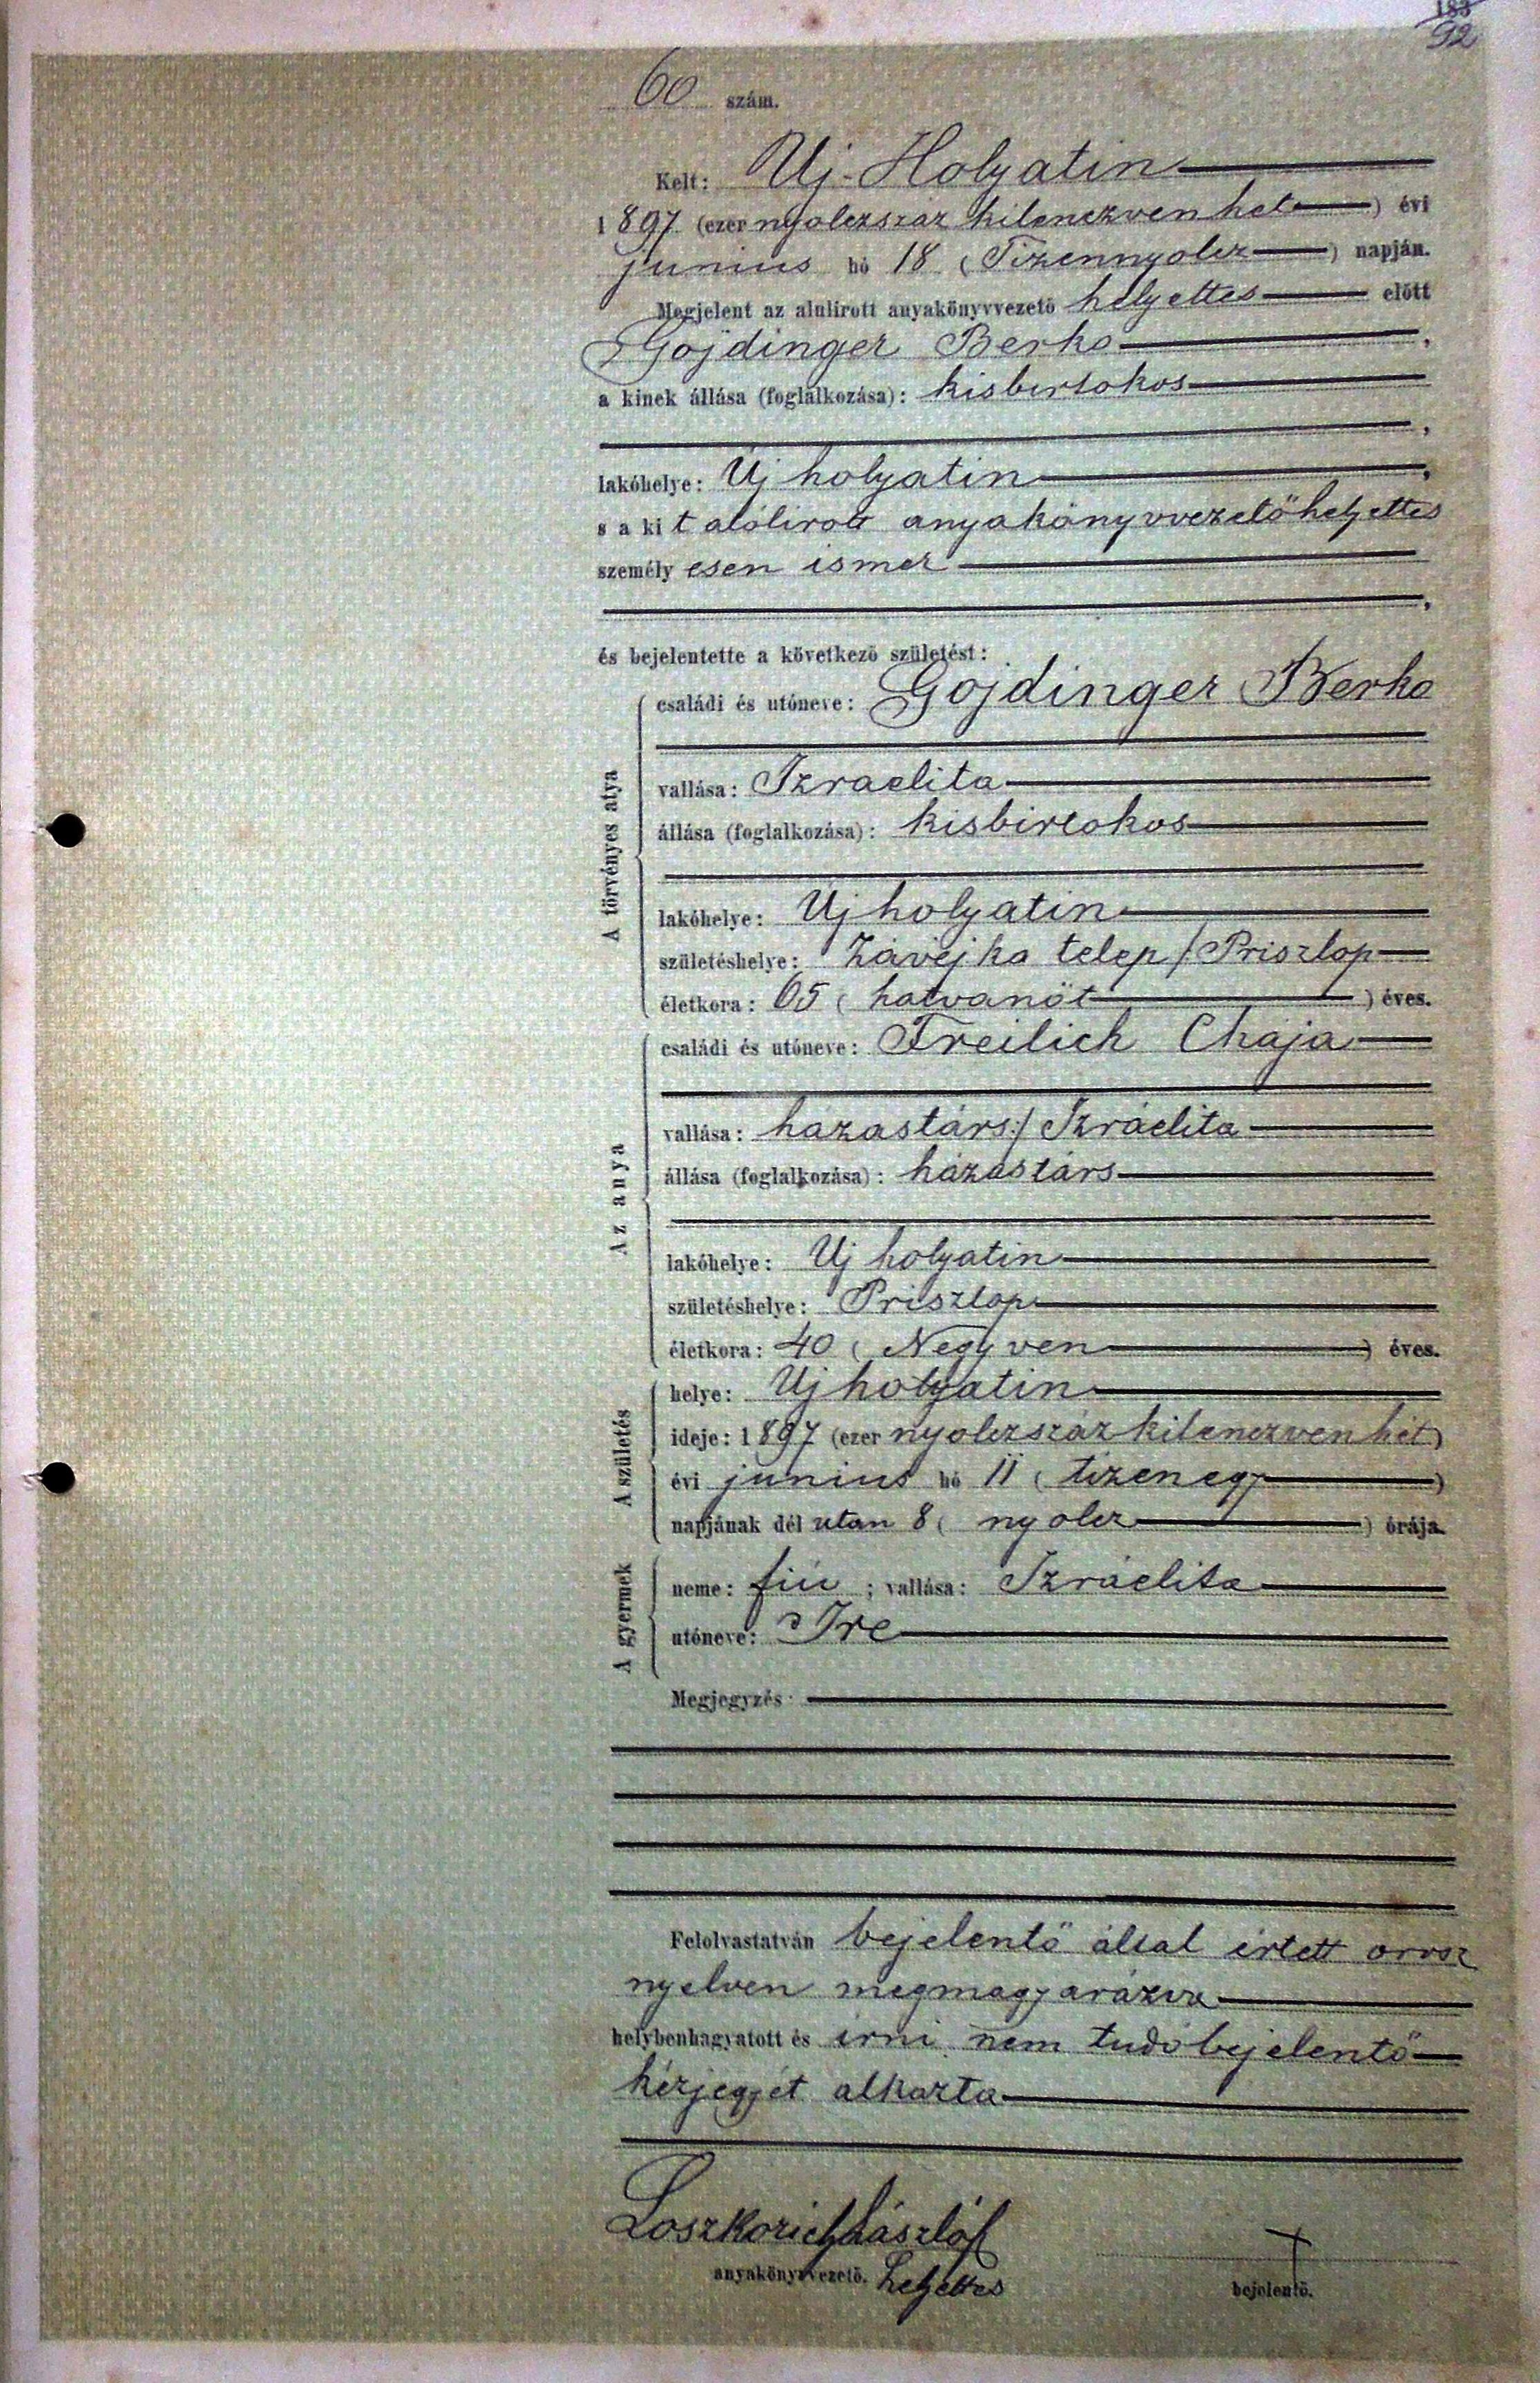 183
92
60 szám.
Kelt: Uj-Holyatin
1897 (ezer nyolczszáz kilenczvenhet) évi
junius hó 18 (Tizennyolcz) napján.
Megjelent az alulirott anyakönyvvezető helyettes előtt
Gojdinger Berko,
a kinek állása (foglalkozása): kisbirtokos
,
lakóhelye: Uj holyatin,
s a kit alólirott anyakönyvvezetőhelyettes
személyesen ismer
,
és bejelentette a következő születést:
A törvényes atya
családi és utóneve: Gojdinger Berko
vallása: Izraelita
állása (foglalkozása): kisbirtokos
lakóhelye: Uj holyatin
születéshelye: Závejka telep / Priszlop
életkora: 65 (hatvanöt) éves.
Az anya
családi és utóneve: Freilich Chaja
vallása: házastárs:/ Izráelita
állása (foglalkozása): házastárs
lakóhelye: Uj holyatin
születéshelye: Priszlop
életkora: 40 (Negyven) éves.
A születés
helye: Uj holyatin
ideje: 1897 (ezer nyolczszáz kilenczven hét)
évi junius hó 11 (tizenegy)
napjának dél utan 8 (nyolcz) órája.
A gyermek
neme: fiú; vallása: Izráelita
utóneve: Ire
Megjegyzés:
Felolvastatván bejelentő által értett orosz
nyelven megmagyarázva
helybenhagyatott és irni nem tudó bejelentő
kézjegyét alkazta
Loszkorich László
anyakönyvvezető. helyettes
bejelentő.